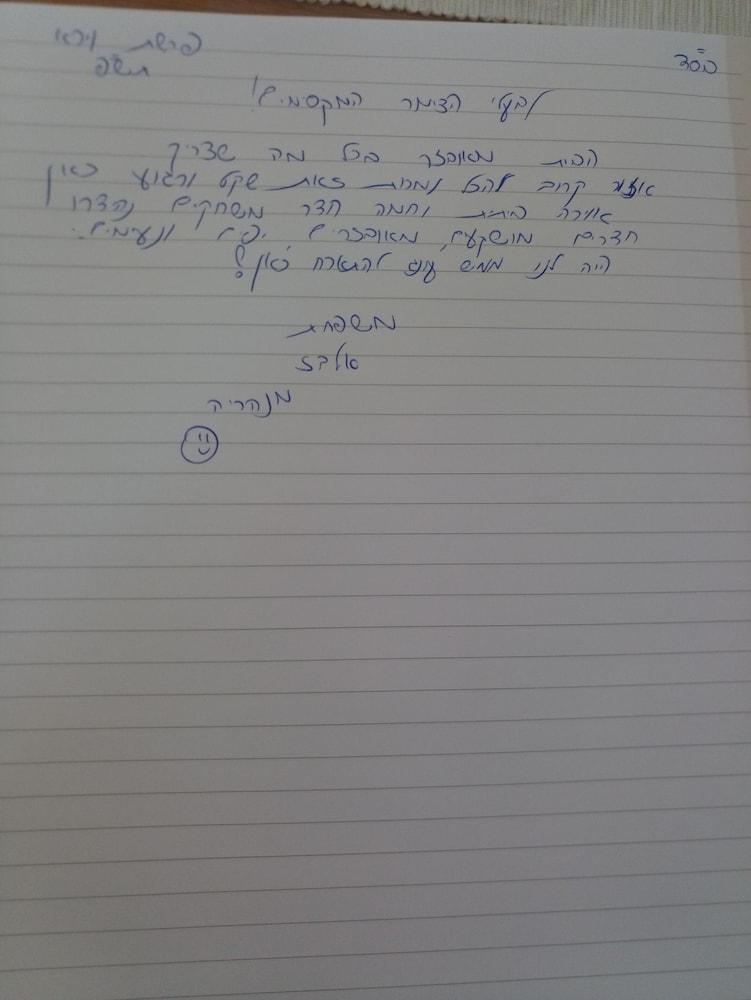 בס"ד
פרשת וירא
תש"פ
לבעלי הצימר המקסימים!
הבית מאובזר בכל מה שצריך
קרוב להכל למרות זאת שקט ורגוע כאן
אווירה ביתית וחמה חדר משחקים נהדר
חדרים מושקעים, מאובזרים יפים ונעימים.
היה לנו ממש עונג להתארח כאן!
משפחת
אלבז
מנהריה